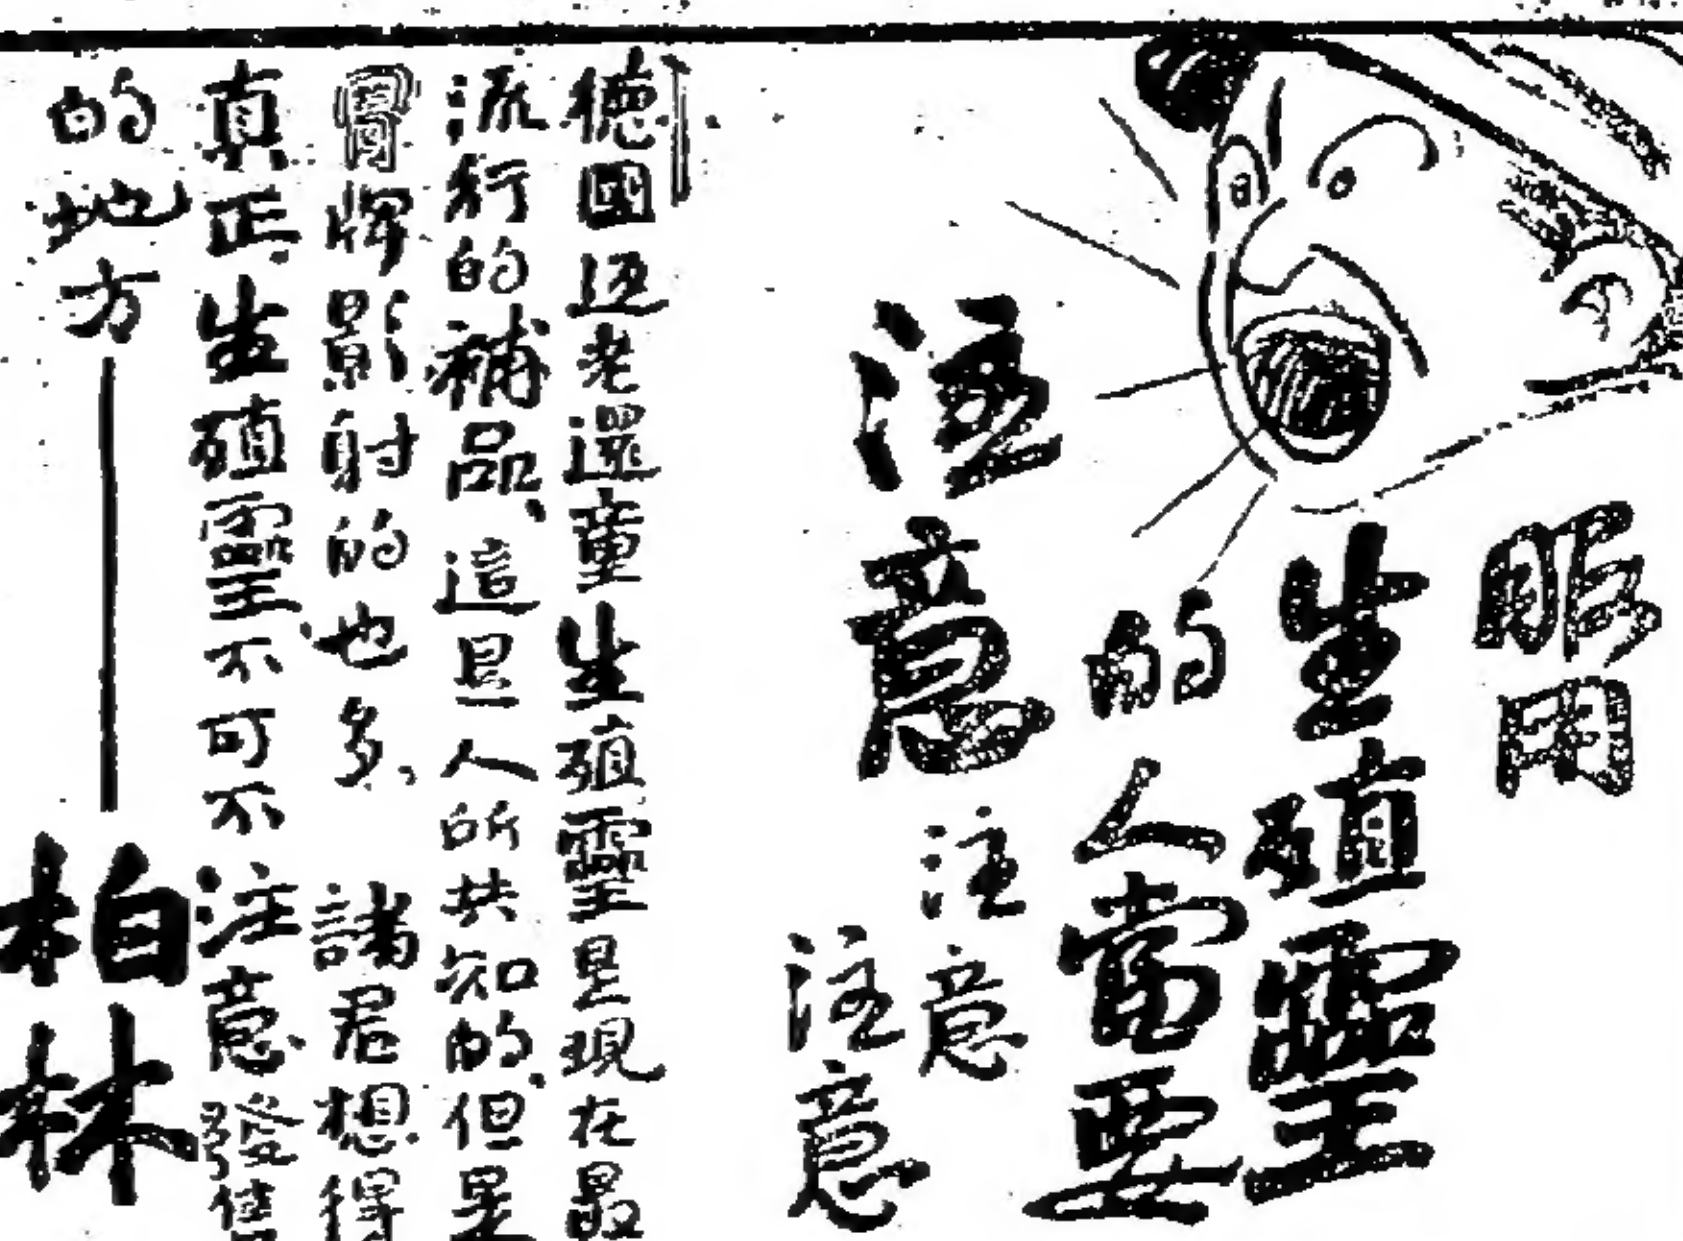 服用
生殖靈
的人當要
注意
注意
注意
德國返老還童生殖靈是現在最
流行的補品、這是人所共知的、但是
冒牌影射的也多、諸君想得
真正生殖靈、不可不注意發售
的地方——柏林